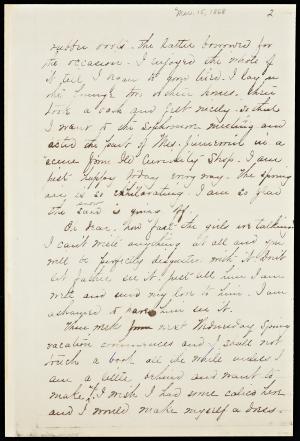 Mar. 15, 1868
2
rubber boots. The latter borrowed for
the occasion. I enjoyed the whole of
it till I began to grow tired. I lay on
the lounge two or three hours. Then
took a bath and felt nicely. So that
I went to the Sophomore meeting and
acted the part of Mrs. Jiniwin in a
scene from Old Curiosity Shop. I am
just happy today every way. The spring
air is so exhilarating. I am so glad
the snow is going off.
Oh dear. how fast the girls are talking
I can't write anything at all and you
will be perfectly disgusted with it. Don't
let father see it. just tell him I am
well and send my love to him. I am
ashamed to have him see it.
Three weeks from next Wednesday Spring
vacation commences and I could not
touch a book all the while unless I
am a little behind and want to
make up. I wish I had some calico here
and I would make myself a dress.